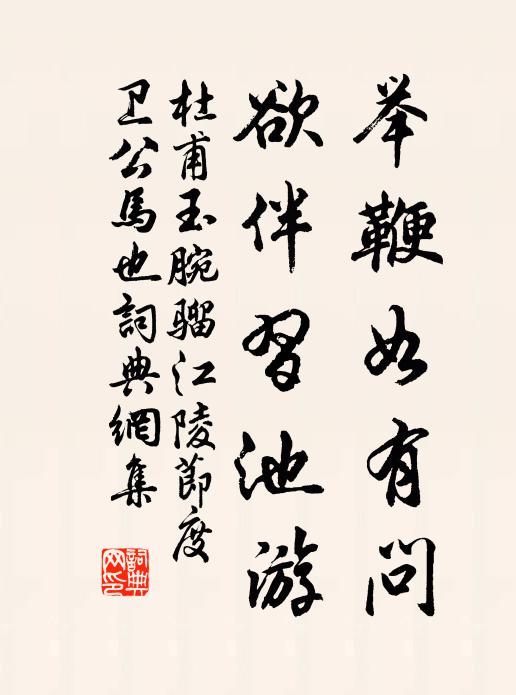 举鞭如有问
欲伴习池游
杜甫玉腕骝江陵節度
卫公馬也詞典網集
詞典网印